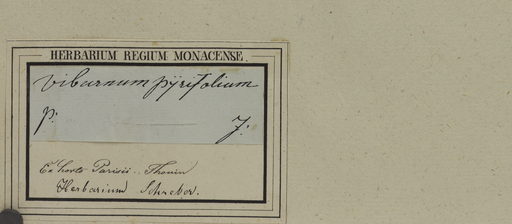 HERBARIUM REGIUM MONACENSE.
Viburnum pÿrifolium
p: J:
Ex horto Parisii. Thouin
Herbarium Schreber.